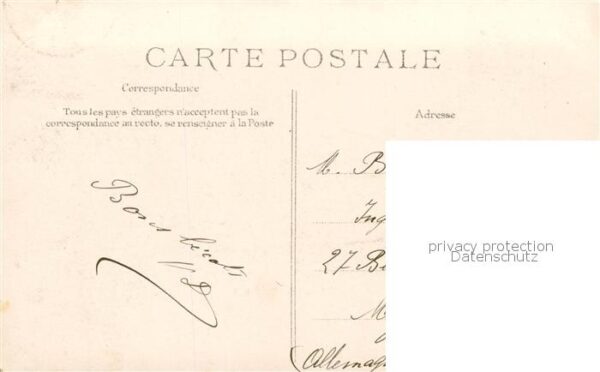 CARTE POSTALE
Correspondance
Tous les pays étrangers n'acceptent pas la
correspondance au recto, se renseigner à la Poste
Adresse
Bons
M. B
Ing
27 B
M
(Allemag
privacy protection
Datenschutz